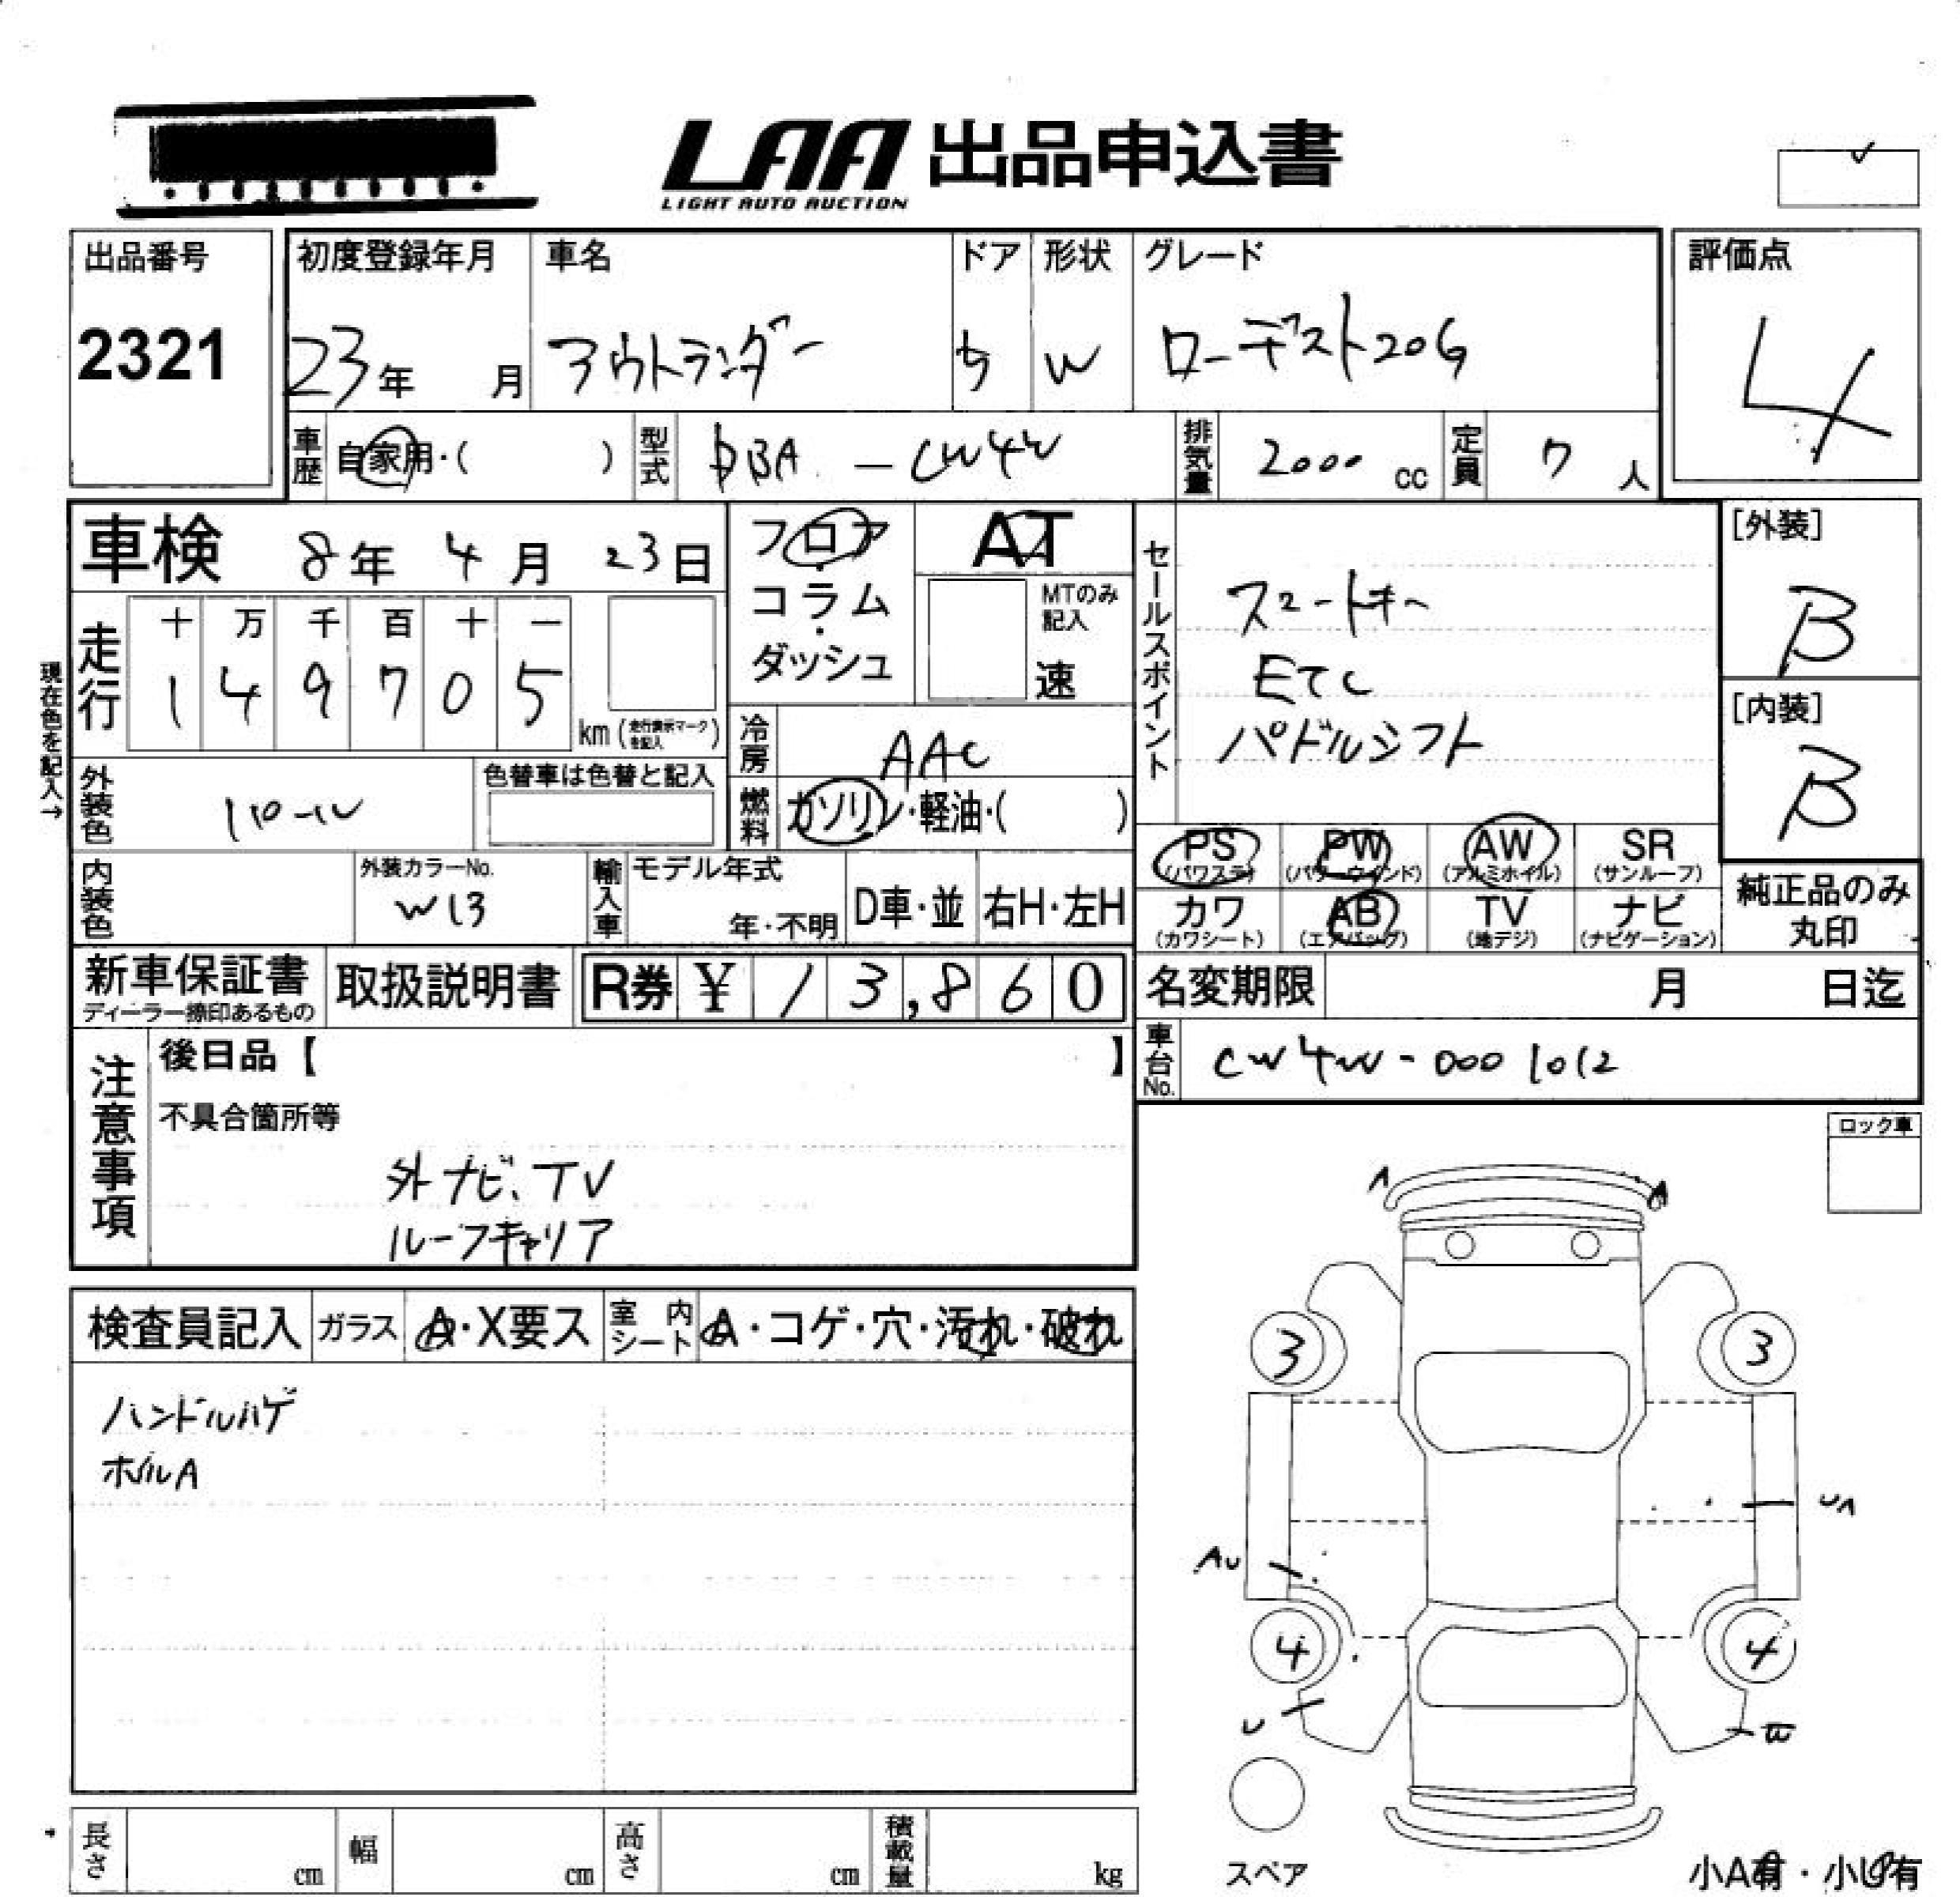 LAA 出品申込書
LIGHT AUTO AUCTION
出品番号
2321
初度登録年月
23年 月
車名
アウトランダー
ドア
5
形状
W
グレード
ローデスト20G
評価点
4
車歴 自家用・( )
型式 DBA - CW4W
排気量 2000 cc
定員 7 人
車検 8年 4月 23日
フロア・コラム・ダッシュ
AT
MTのみ記入
速
セールスポイント
スマートキー
ETC
パドルシフト
[外装]
B
[内装]
B
現在色を記入→
走行
十 万 千 百 十 一
1 4 9 7 0 5
km (走行表示マークを記入)
冷房 AAC
燃料 ガソリン・軽油・( )
外装色 パール
色替車は色替と記入
内装色
外装カラーNo.
W13
輸入車
モデル年式
年・不明
D車・並
右H・左H
PS (パワステ)
PW (パワーウインド)
AW (アルミホイル)
SR (サンルーフ)
カワ (カワシート)
AB (エアバッグ)
TV (地デジ)
ナビ (ナビゲーション)
純正品のみ
丸印
新車保証書
ディーラー捺印あるもの
取扱説明書
R券 ¥ 13,860
名変期限 月 日迄
車台No. CW4W-0001012
注意事項
後日品【 】
不具合箇所等
外ナビ、TV
ルーフキャリア
ロック車
検査員記入
ガラス A・X要ス
室内シート A・コゲ・穴・汚れ・破れ
ハンドルハゲ
ホイルA
A A
3 3
UA
AU
4 4
U W
スペア
小A有・小U有
長さ cm
幅 cm
高さ cm
積載量 kg